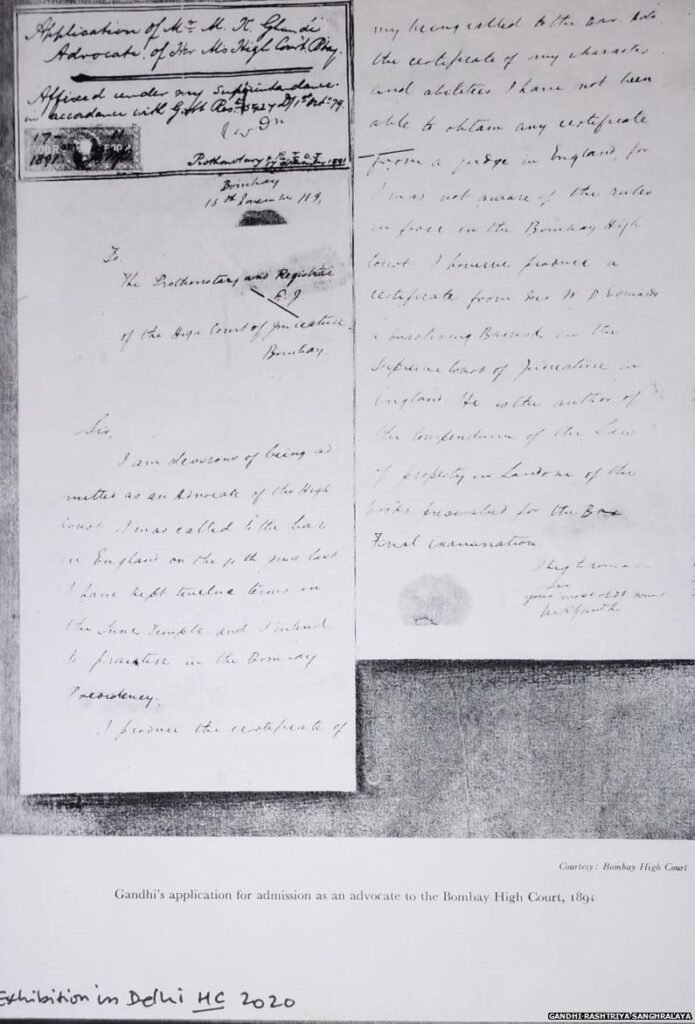 Application of Mr M. K. Ghandi
Advocate of Her Ms High Court Bbay.
Affixed under my Superintendance
in accordance with Govt Resn
17 - 11
1891
Prothonotary
Bombay
16th November 189,
To
The Prothonotary and Registrar
of the High Court of Judicature
Bombay.
Sir,
I am desirous of being ad
mitted as an Advocate of the High
Court. I was called to the bar
in England on the 10th June last
I have kept twelve terms in
the Inner Temple and I intend
to practise in the Bombay
Presidency.
I produce the certificate of
my being called to the Bar. As to
the certificate of my character
and abilities I have not been
able to obtain any certificate
from a judge in England, for
I was not aware of the rules
in force in the Bombay High
Court. I however produce a
certificate from Mr W D Edwards
a practising Barrister in the
Supreme Court of Judicature in
England. He is the author of
the Compendium of the Law
of property in Land one of the
books prescribed for the Bar
Final examination.
Sir
your most obdt servt
M K Gandhi
Courtesy: Bombay High Court
Gandhi's application for admission as an advocate to the Bombay High Court, 1891
Exhibition in Delhi HC 2020
GANDHI RASHTRIYA SANGHRALAYA